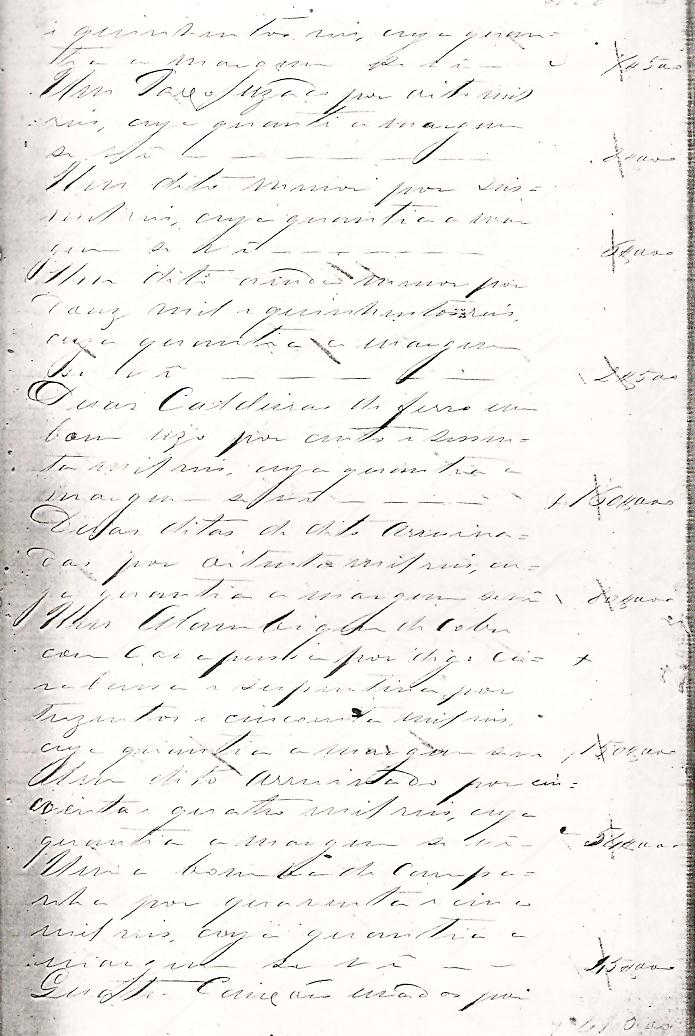 e quinhentos reis, cuja quan-
tia a margem se vê — $4500
Um Taxo uzado por oito mil
reis, cuja quantia a margem
se vê — — — — — 8$000
Um dito menor por seis=
mil reis, cuja quantia a mar
gem se vê — — — — —
Um dito ainda menor por
douz mil e quinhentos reis,
cuja quantia a margem
se vê — — — — — 2$500
Duas Caldeiras de ferro em
bom uzo por cento e sessen-
ta mil reis, cuja quantia a
margem se vê — — — — 160$000
Duas ditas de dito arruina-
das por oitenta mil reis, cu-
ja quantia a margem se vê 80$000
Um Alambique de Cobre
com Carapuça por digo Ca=
rabuça e serpentina por
trezentos e cincoenta mil reis,
cuja quantia a margem se vê
Um dito arruinado por cin=
coenta e quatro mil reis, cuja
quantia a margem se vê — 54$000
Uma bomba de Campa-
nha por quarenta e cinco
mil reis, cuja quantia a
margem se vê — — 45$000
Quatro usados por